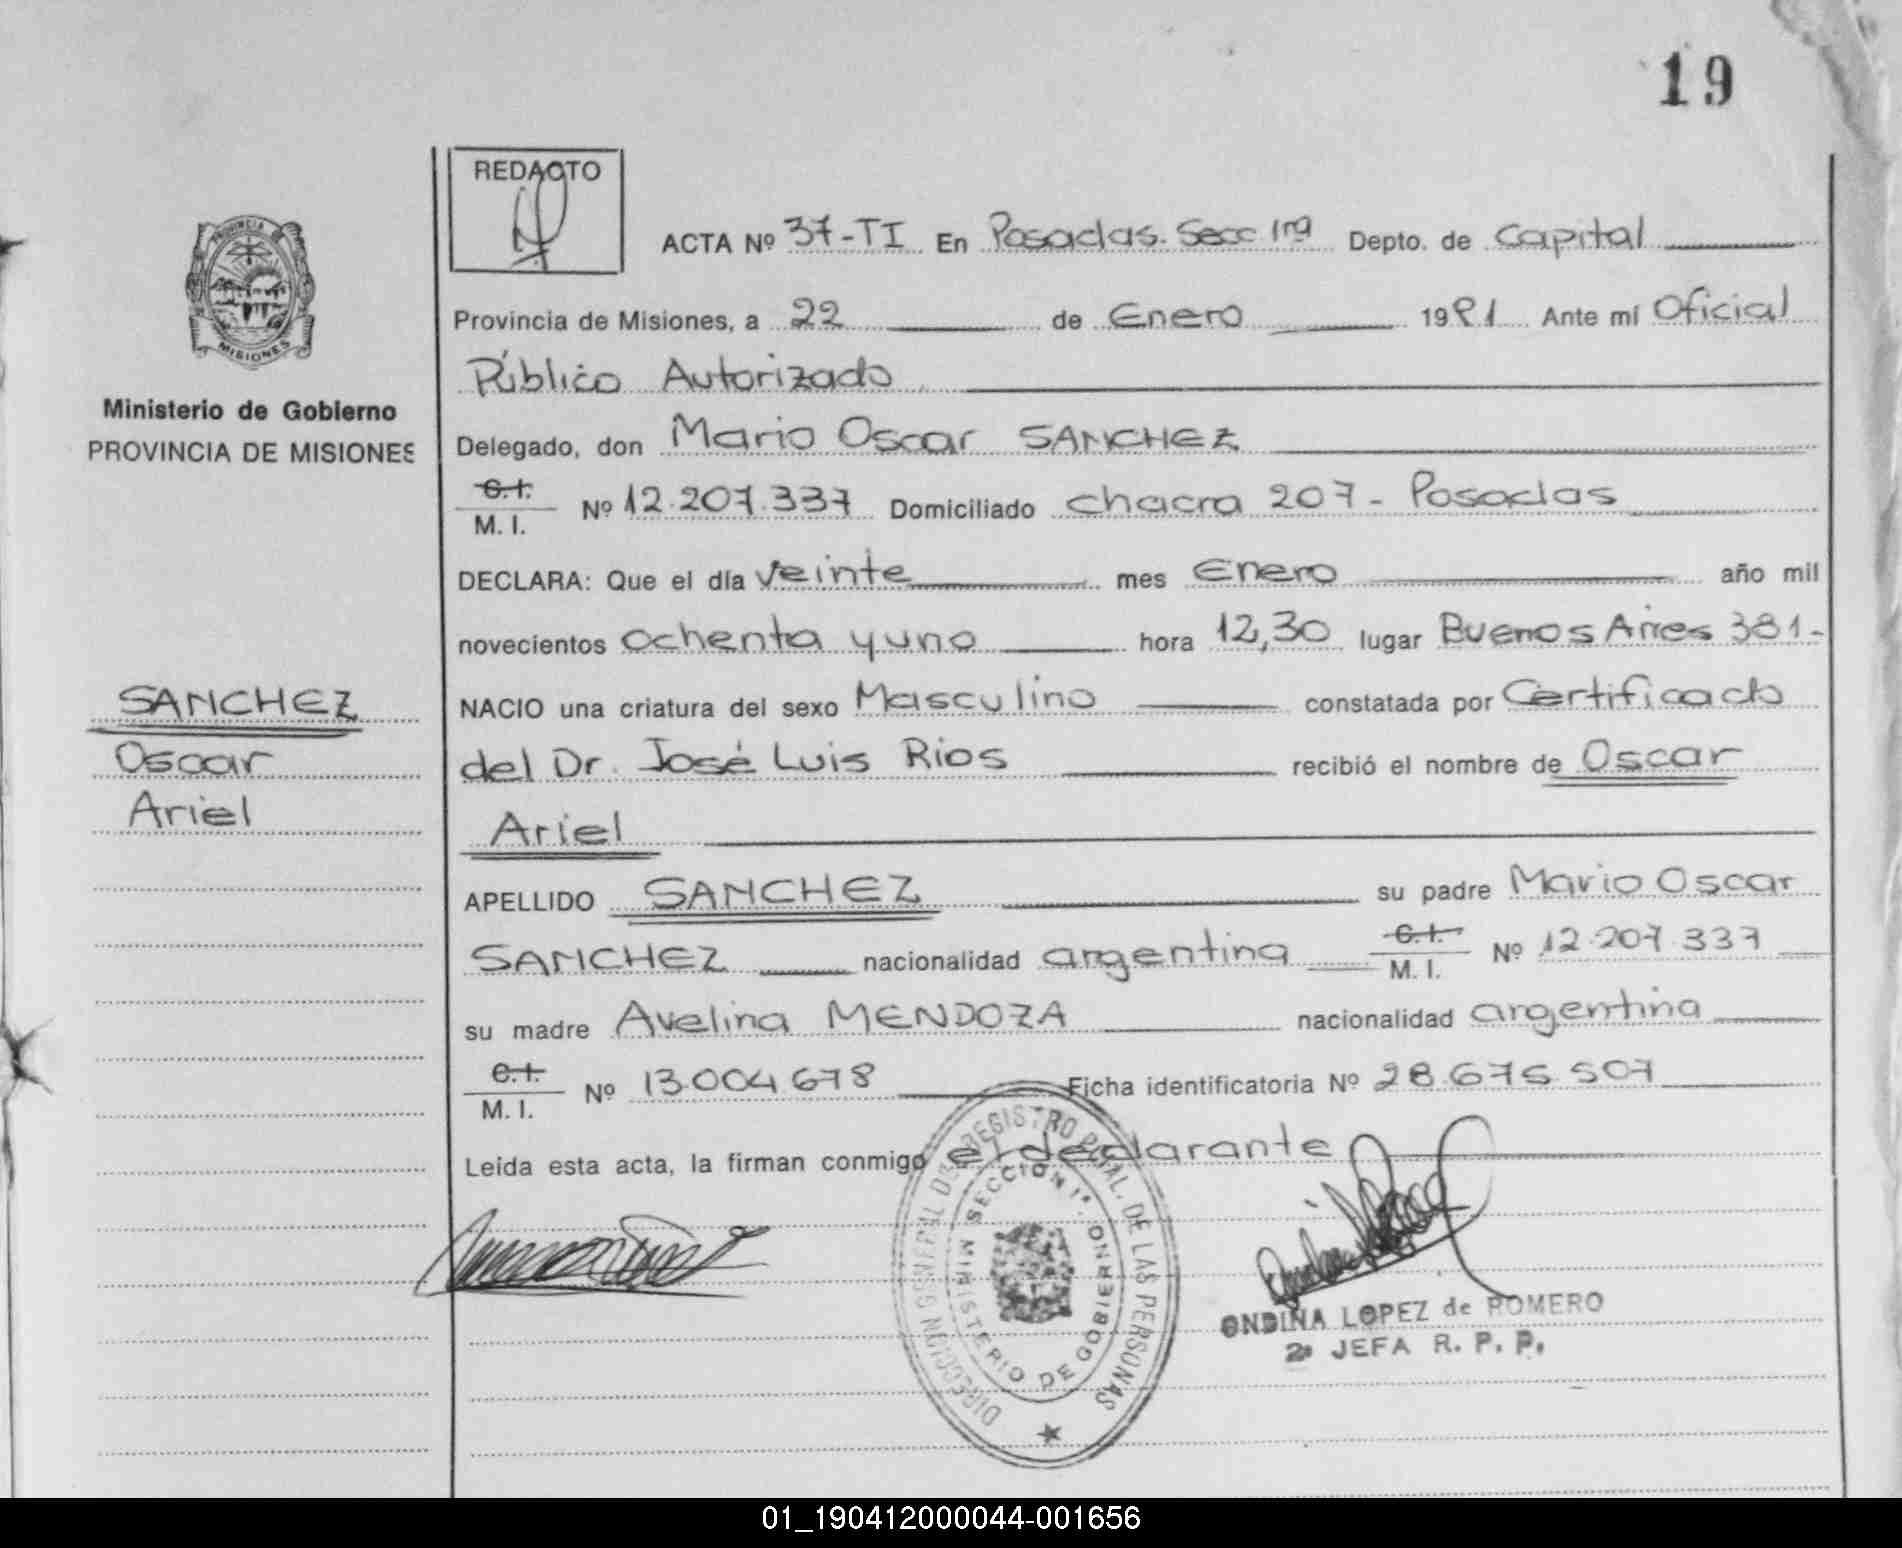 19
REDACTO
ACTA Nº 37-TI En Posadas. Secc 1ra Depto. de Capital
Provincia de Misiones, a 22 de Enero 1981 Ante mí Oficial
Público Autorizado
Delegado, don Mario Oscar SANCHEZ
C.I.
M. I. Nº 12.207.337 Domiciliado Chacra 207 - Posadas
DECLARA: Que el día Veinte mes Enero año mil
novecientos Ochenta y uno hora 12,30 lugar Buenos Aires 381-
NACIO una criatura del sexo Masculino constatada por Certificado
del Dr. José Luis Rios recibió el nombre de Oscar
Ariel
APELLIDO SANCHEZ su padre Mario Oscar
SANCHEZ nacionalidad argentina C.I. M. I. Nº 12.207.337
su madre Avelina MENDOZA nacionalidad argentina
C.I.
M. I. Nº 13.004.678 Ficha identificatoria Nº 28.675.507
Leída esta acta, la firman conmigo el declarante
PROVINCIA DE
MISIONES
Ministerio de Gobierno
PROVINCIA DE MISIONES
SANCHEZ
Oscar
Ariel
DIRECCION GENERAL DEL REGISTRO PCIAL. DE LAS PERSONAS
SECCION 1ª. MINISTERIO DE GOBIERNO
ONDINA LOPEZ de ROMERO
2ª JEFA R. P. P.
01_190412000044-001656